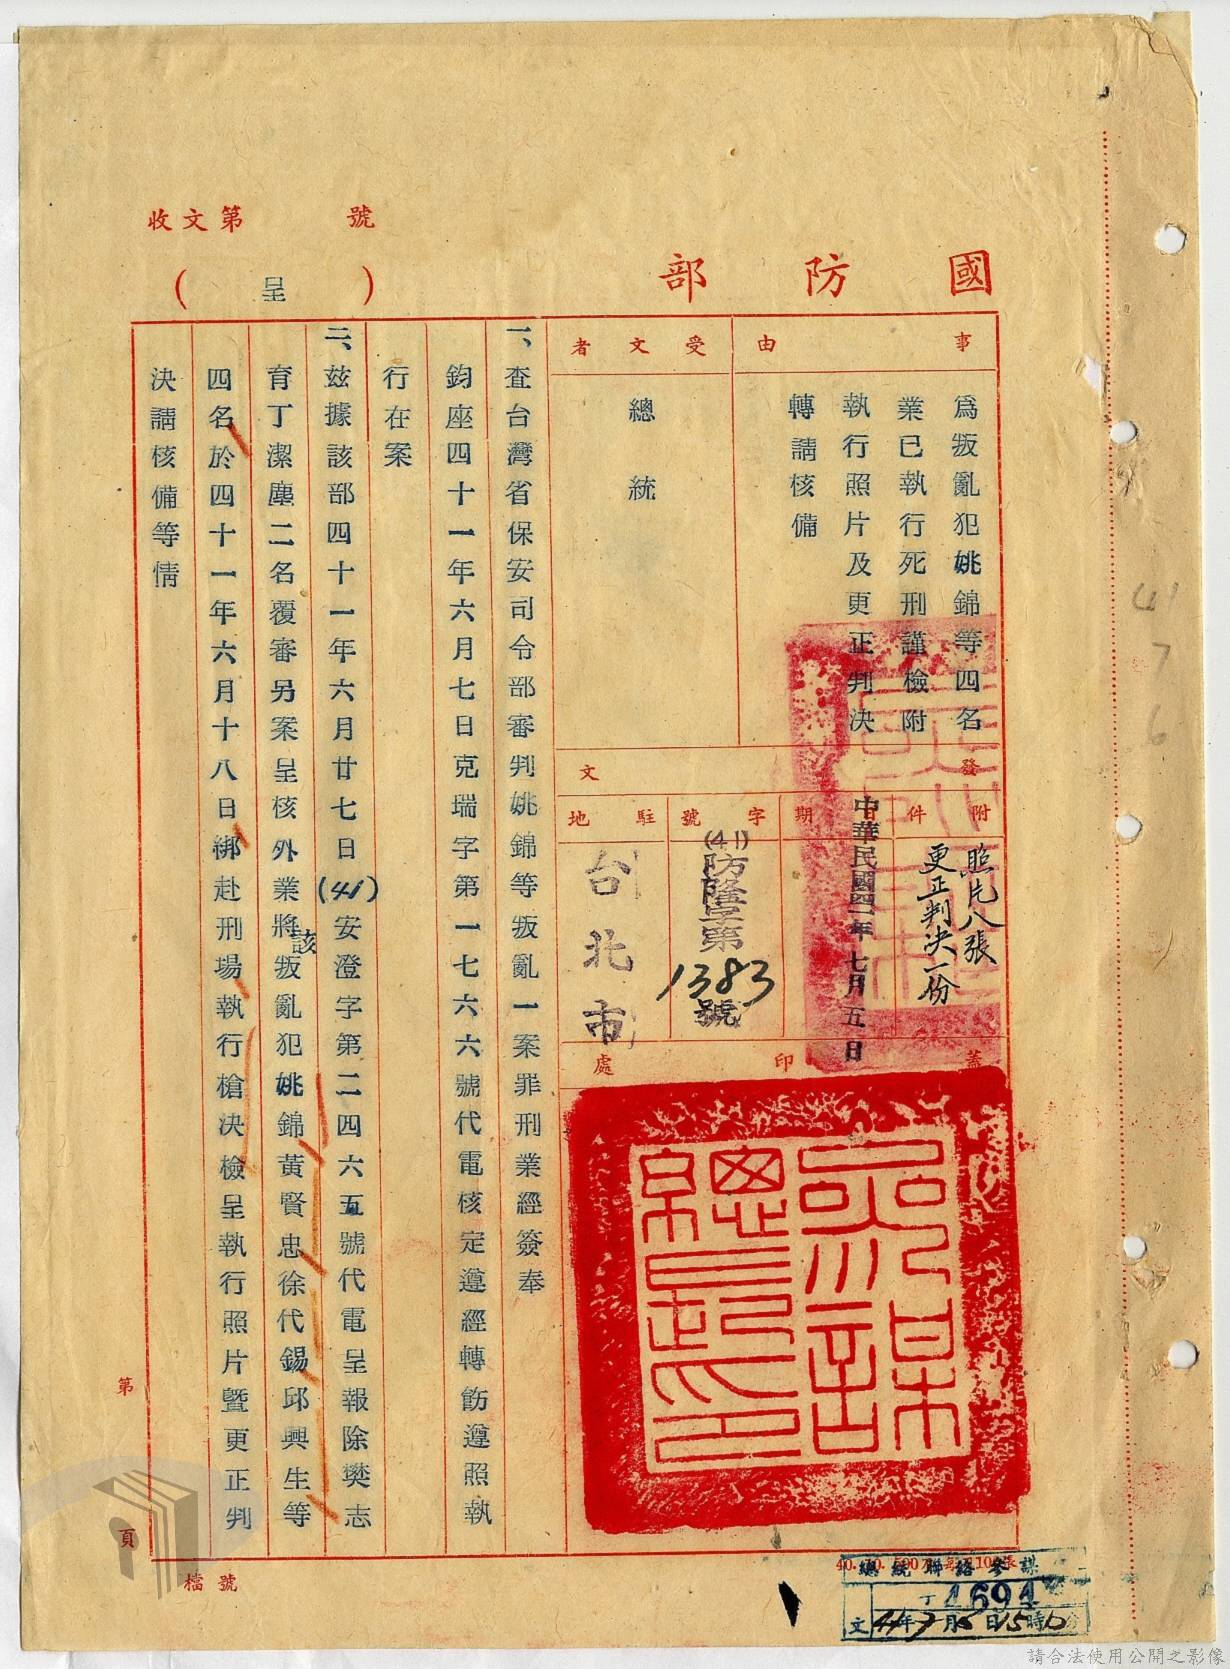 收文第　　　號
國防部
（呈）
事由
爲叛亂犯姚錦等四名
業已執行死刑謹檢附
執行照片及更正判決
轉請核備
受文者
總統
發文
附件
照片八張
更正判決一份
日期
中華民國四一年七月五日
字號
(41)防隆字第1383號
駐地
台北市
蓋印處
參謀總長印
一、查台灣省保安司令部審判姚錦等叛亂一案罪刑業經簽奉
鈞座四十一年六月七日克瑞字第一七六六號代電核定遵經轉飭遵照執
行在案
二、玆據該部四十一年六月廿七日(41)安澄字第二四六五號代電呈報除樊志
育丁潔塵二名覆審另案呈核外業將該叛亂犯姚錦黃賢忠徐代錫邱興生等
四名於四十一年六月十八日綁赴刑場執行槍決檢呈執行照片暨更正判
決請核備等情
第　頁
檔號
總統聯絡參謀
1694
文 41年7月6日15時10分
41 7 6
請合法使用公開之影像